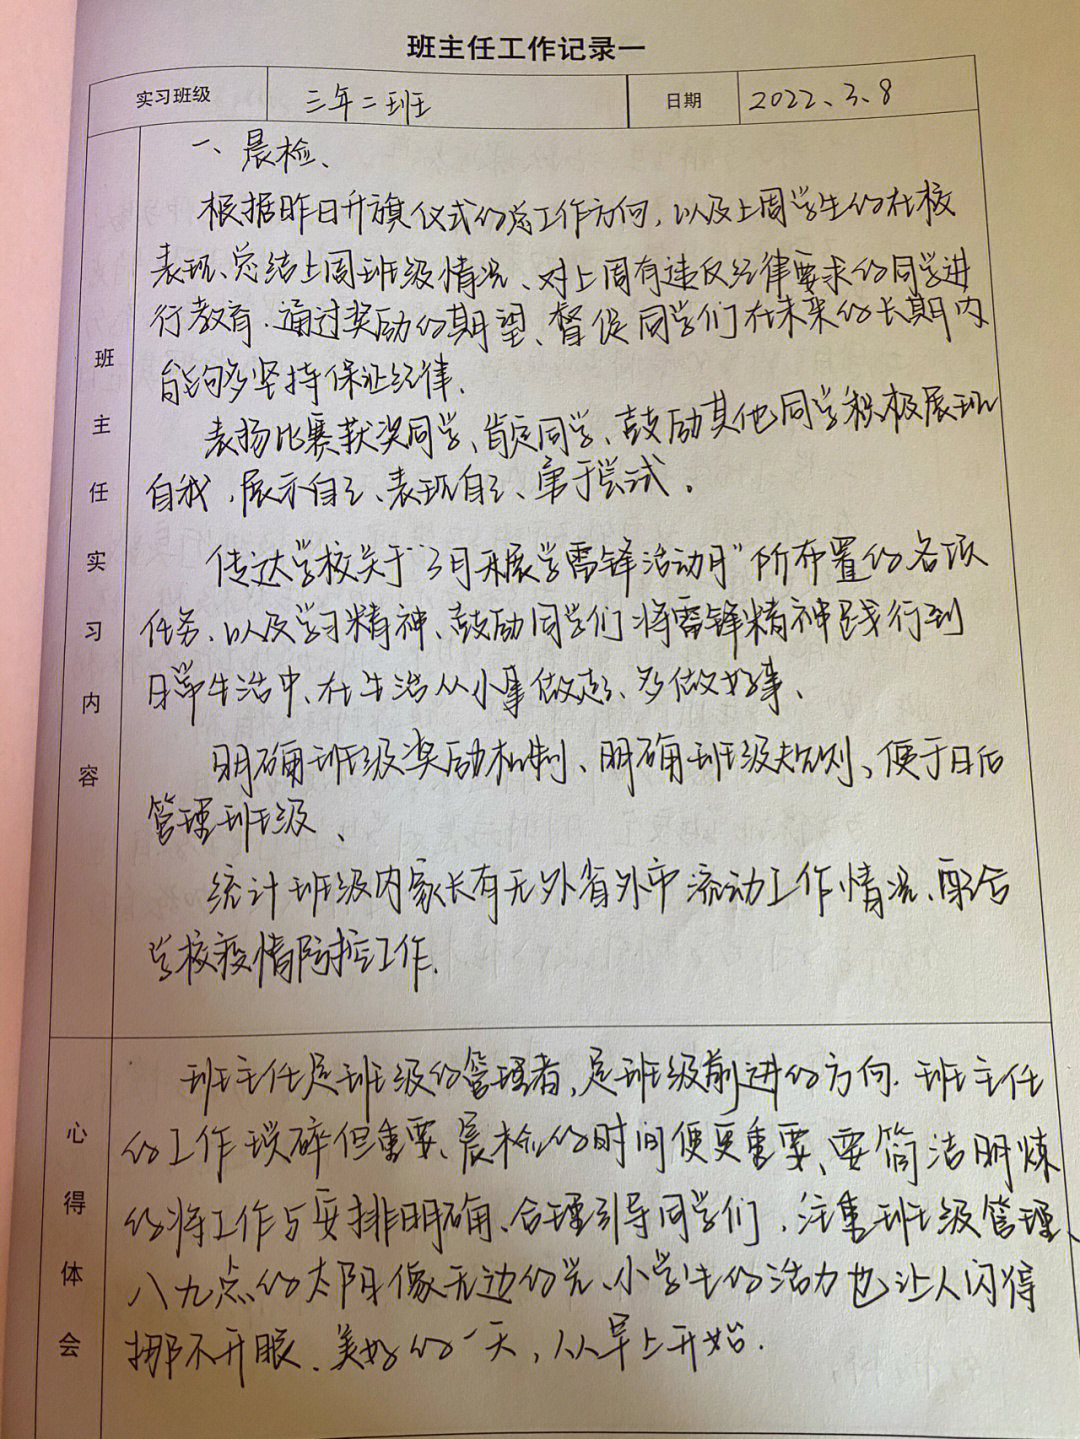 班主任工作记录一
实习班级 三年二班 日期 2022、3、8
班主任实习内容
一、晨检、
根据昨日升旗仪式的总工作方向，以及上周学生的在校
表现、总结上周班级情况、对上周有违反纪律要求的同学进
行教育、通过奖励的期望、督促同学们在未来的长期内
能够多坚持保证纪律.
表扬比赛获奖同学、肯定同学、鼓励其他同学积极展现
自我，展示自己、表现自己、勇于尝试。
传达学校关于“3月开展学雷锋活动月”所布置的各项
任务、以及学习精神、鼓励同学们将雷锋精神践行到
日常生活中、在生活从小事做起、多做好事、
明确班级奖励机制、明确班级规则、便于日后
管理班级、
统计班级内家长有无外省外市流动工作情况、配合
学校疫情防控工作.
心得体会
班主任是班级的管理者，是班级前进的方向. 班主任
的工作琐碎但重要、晨检的时间便更重要、要简洁明炼
的将工作与安排明确、合理引导同学们，注重班级管理、
八九点的太阳像无边的光、小学生的活力也让人闪得
挪不开眼、美好的一天，从早上开始.